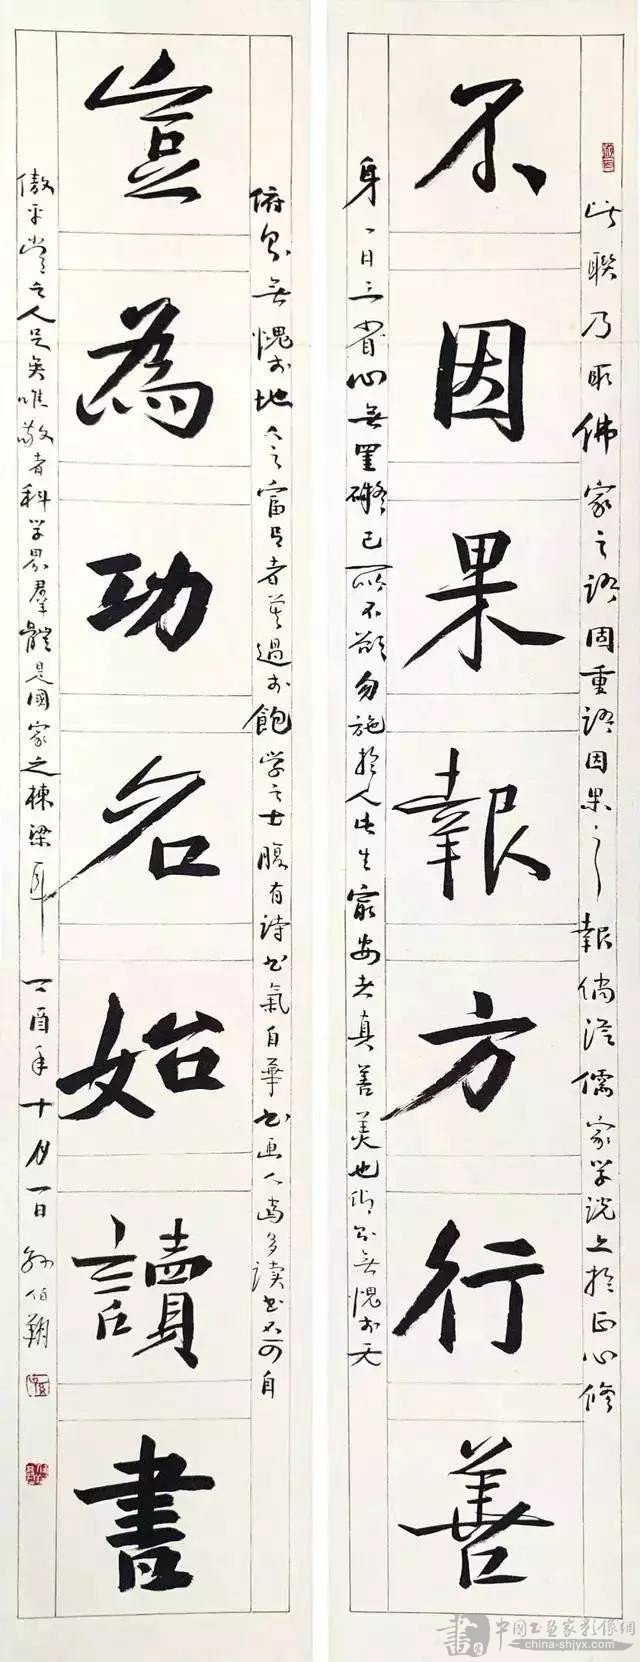 不因果報方行善
豈為功名始讀書
此聯乃取佛家之語固重語因果之報倘從儒家学説上於正心修
身一日三省心無罣礙己所不欲勿施於人此生最安者真善美也仰則無愧於天
俯則無愧於地今之富足者莫過於飽学之士腹有詩书氣自華书画人當多读书不可自
傲平常之人足矣唯敬者科学界羣體是國家之棟梁耳丁酉年十月一日孫伯翔
書
中國书画家影像網
china-shjyx.com